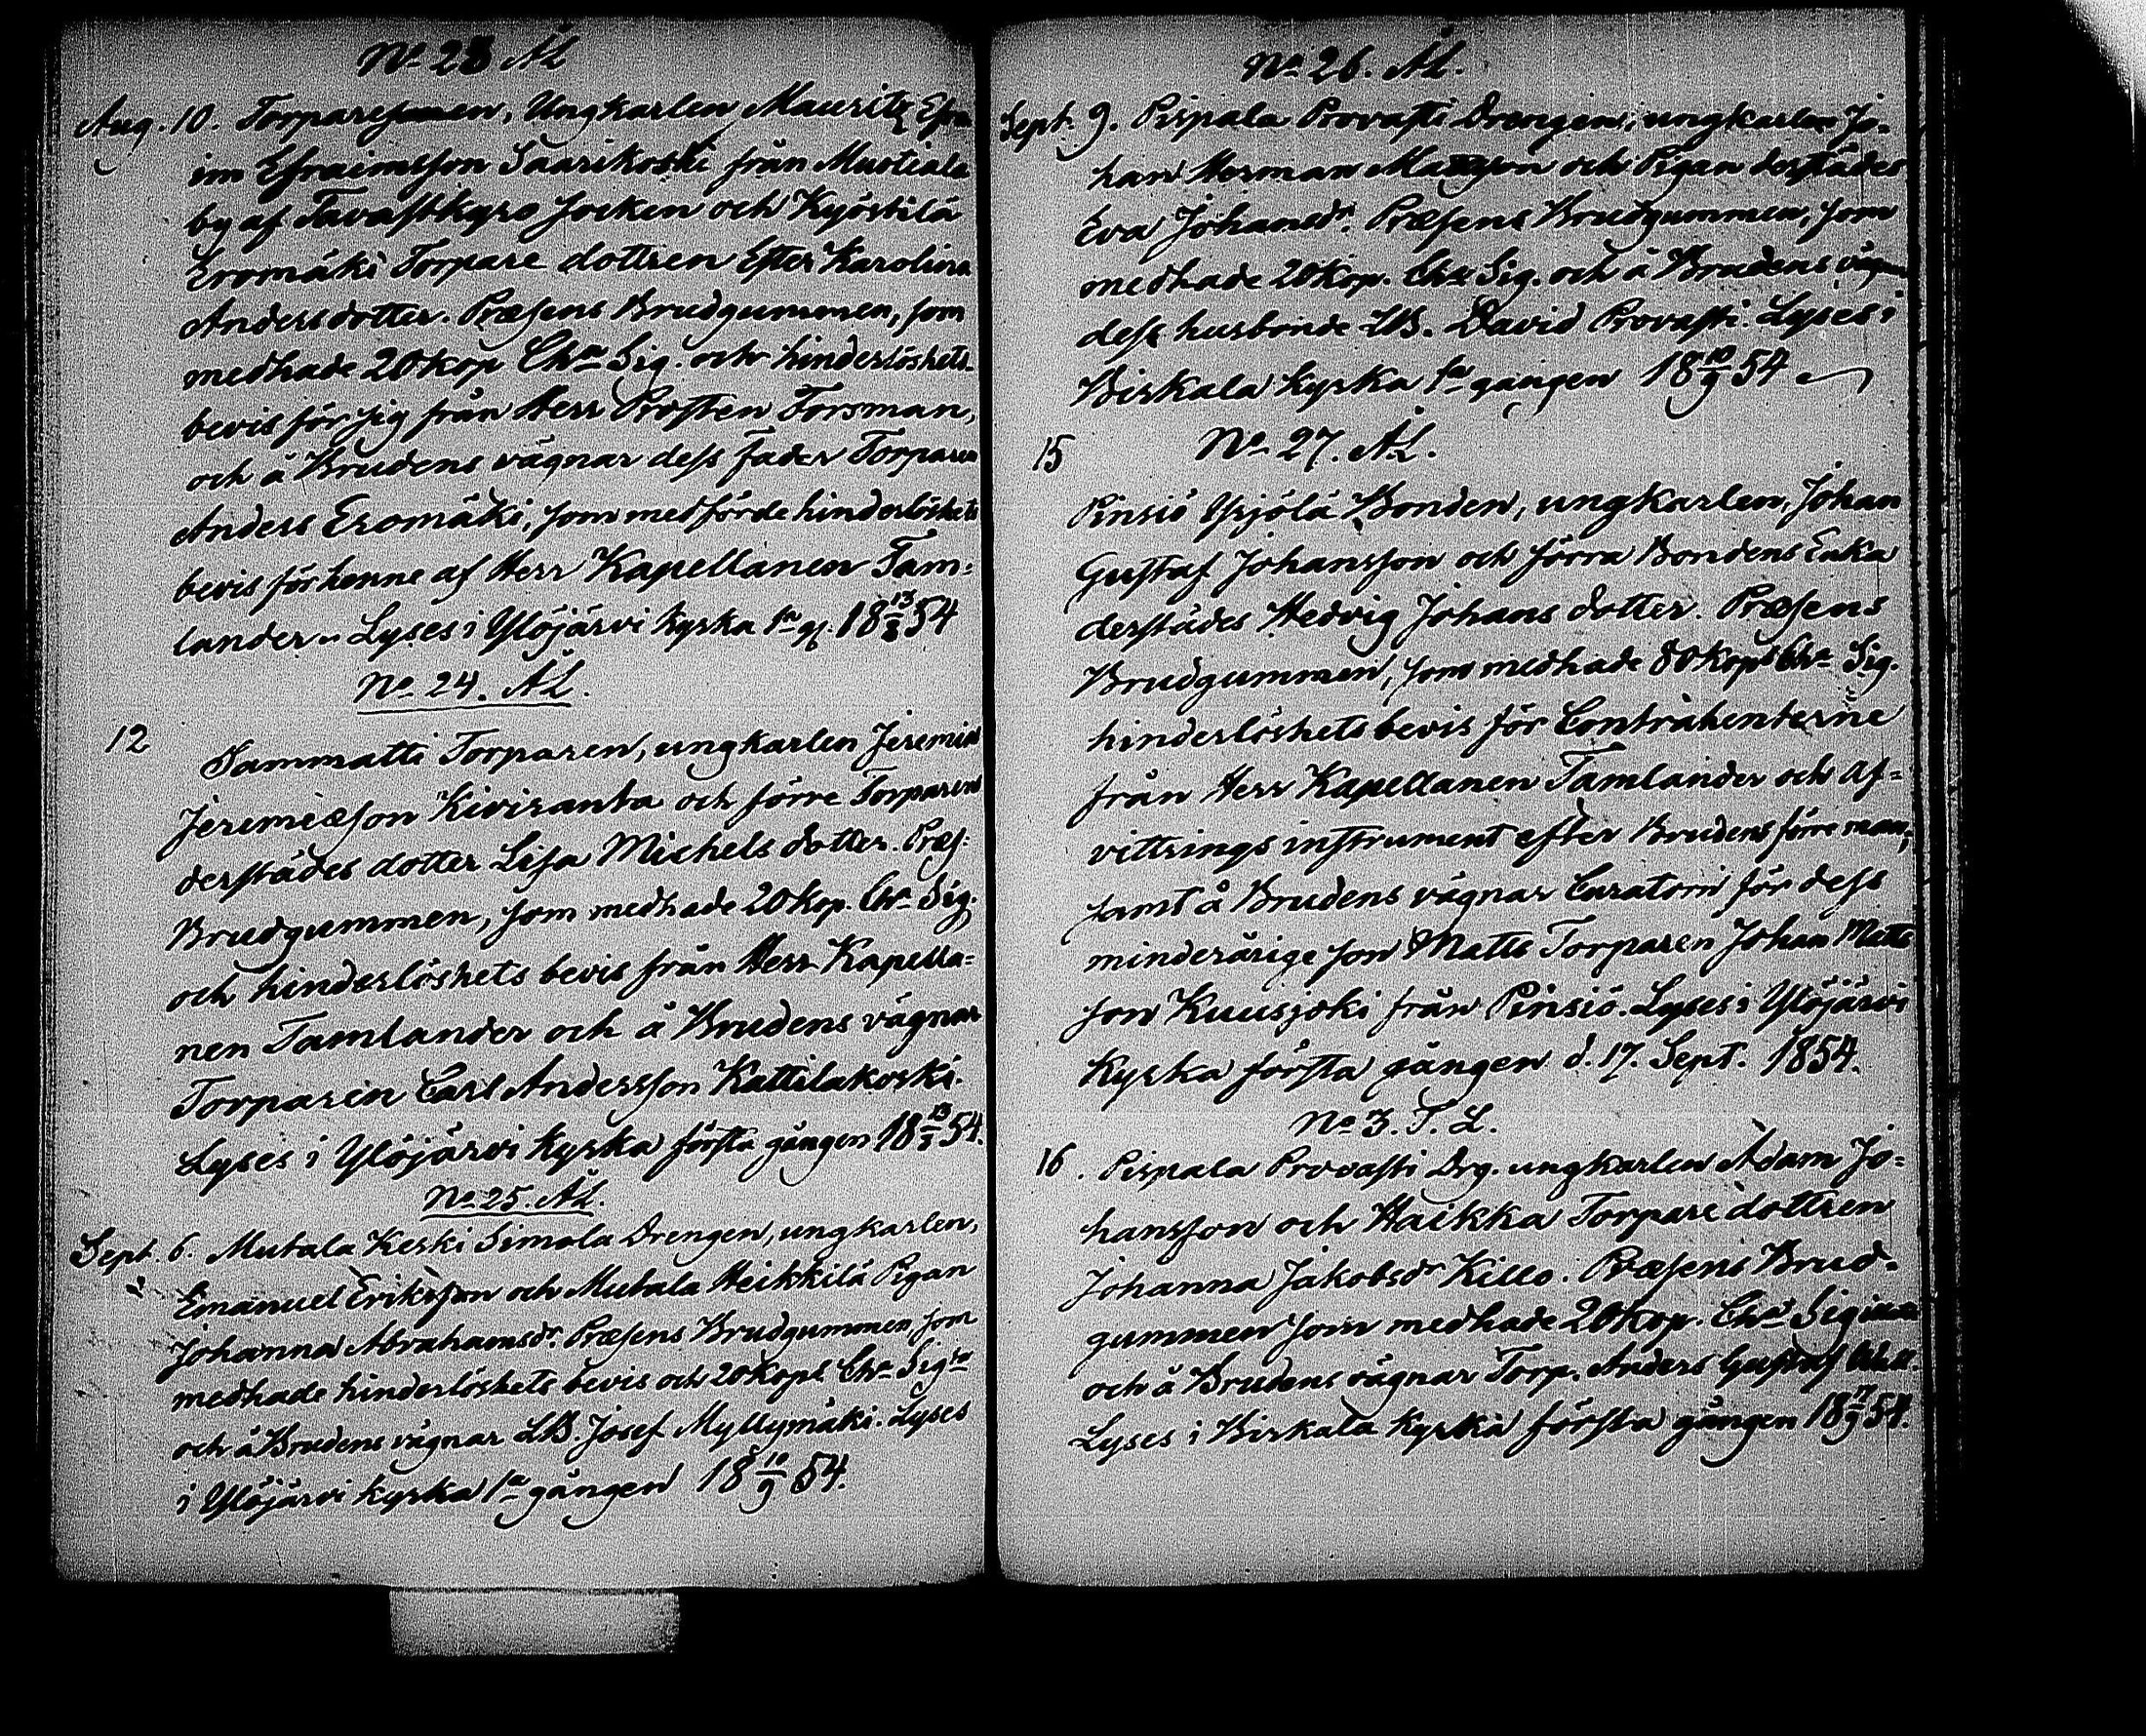 No 23 ÅL
Aug. 10. Torparesonen, Ungkarlen Mauritz Efra
im Efraimsson Saarikoski från Mustiala
by af Tavastkyro socken och Kyöstilä
Eromäki Torpare dottren Ester Karolina
Andersdotter. Præsens Brudgummen, som
medhade 20 kop Cha Sig. och hinderlöshets-
bevis för sig från Herr Prosten Forsman,
och å Brudens vägnar dess fader Torparen
Anders Eromäki, som medförde hinderlöshets
bevis för henne af Herr Kapellanen Tam-
lander. Lyses i Ylöjärvi kyrka 1a g. 18 13/8 54
No 24. ÅL.
12 Sammatti Torparen, ungkarlen Jeremias
Jeremiæson Kiviranta och förre Torparens
derstädes dotter Lisa Michels dotter. Præs:
Brudgummen, som medhade 20 kop. Cha Sig.
och hinderlöshets bevis från Herr Kapella=
nen Tamlander och å Brudens vägnar
Torparen Carl Andersson Kattilakoski.
Lyses i Ylöjärvi kyrka första gången 18 13/8 54.
No 25. ÅL.
Sept. 6. Mutala Keski Simola Drengen, ungkarlen,
Emanuel Eriksson och Mutala Heikkilä Pigan
Johanna Abrahamsdr. Præsens Brudgummen, som
medhade hinderlöshets bevis och 20 kops Cha Siga
och å Brudens vägnar LB. Josef Myllymäki. Lyses
i Ylöjärvi kyrka 1a gången 18 10/9 54.
No 26. ÅL.
Sept. 9. Pispala Provasti Drengen, ungkarlen Jo-
han Herman Mattsson och Pigan derstädes
Eva Johansdr. Præsens Brudgummen, som
medhade 20 kop. Cha Sig. och å Brudens vägnar
dess husbonde LB. David Provasti. Lyses i
Birkala kyrka 1a gången 18 10/9 54
15 No 27. ÅL.
Pinsiö Yrjölä Bonden, ungkarlen, Johan
Gustaf Johansson och förra Bondens Enka
derstädes Hedvig Johans dotter. Præsens
Brudgummen, som medhade 80 kops Cha Sig.
hinderlöshets bevis för Contrahenterne
från Herr Kapellanen Tamlander och af=
vittrings instrument efter Brudens förre man,
samt å Brudens vägnar Curatorn för dess
minderårige son Matts Torparen Johan Matts
son Kuusjoki från Pinsiö. Lyses i Ylöjärvi
Kyrka första gången d. 17. Sept. 1854.
No 3. T. L.
16. Pispala Provasti Drg. ungkarlen Adam Jo=
hansson och Haikka Torpare dottren
Johanna Jakobsdr Killo. Præsens Brud-
gummen som medhade 20 kop. Cha
och å Brudens vägnar Torp. Anders Gustaf
Lyses i Birkala kyrka första gången 18 17/9 54.